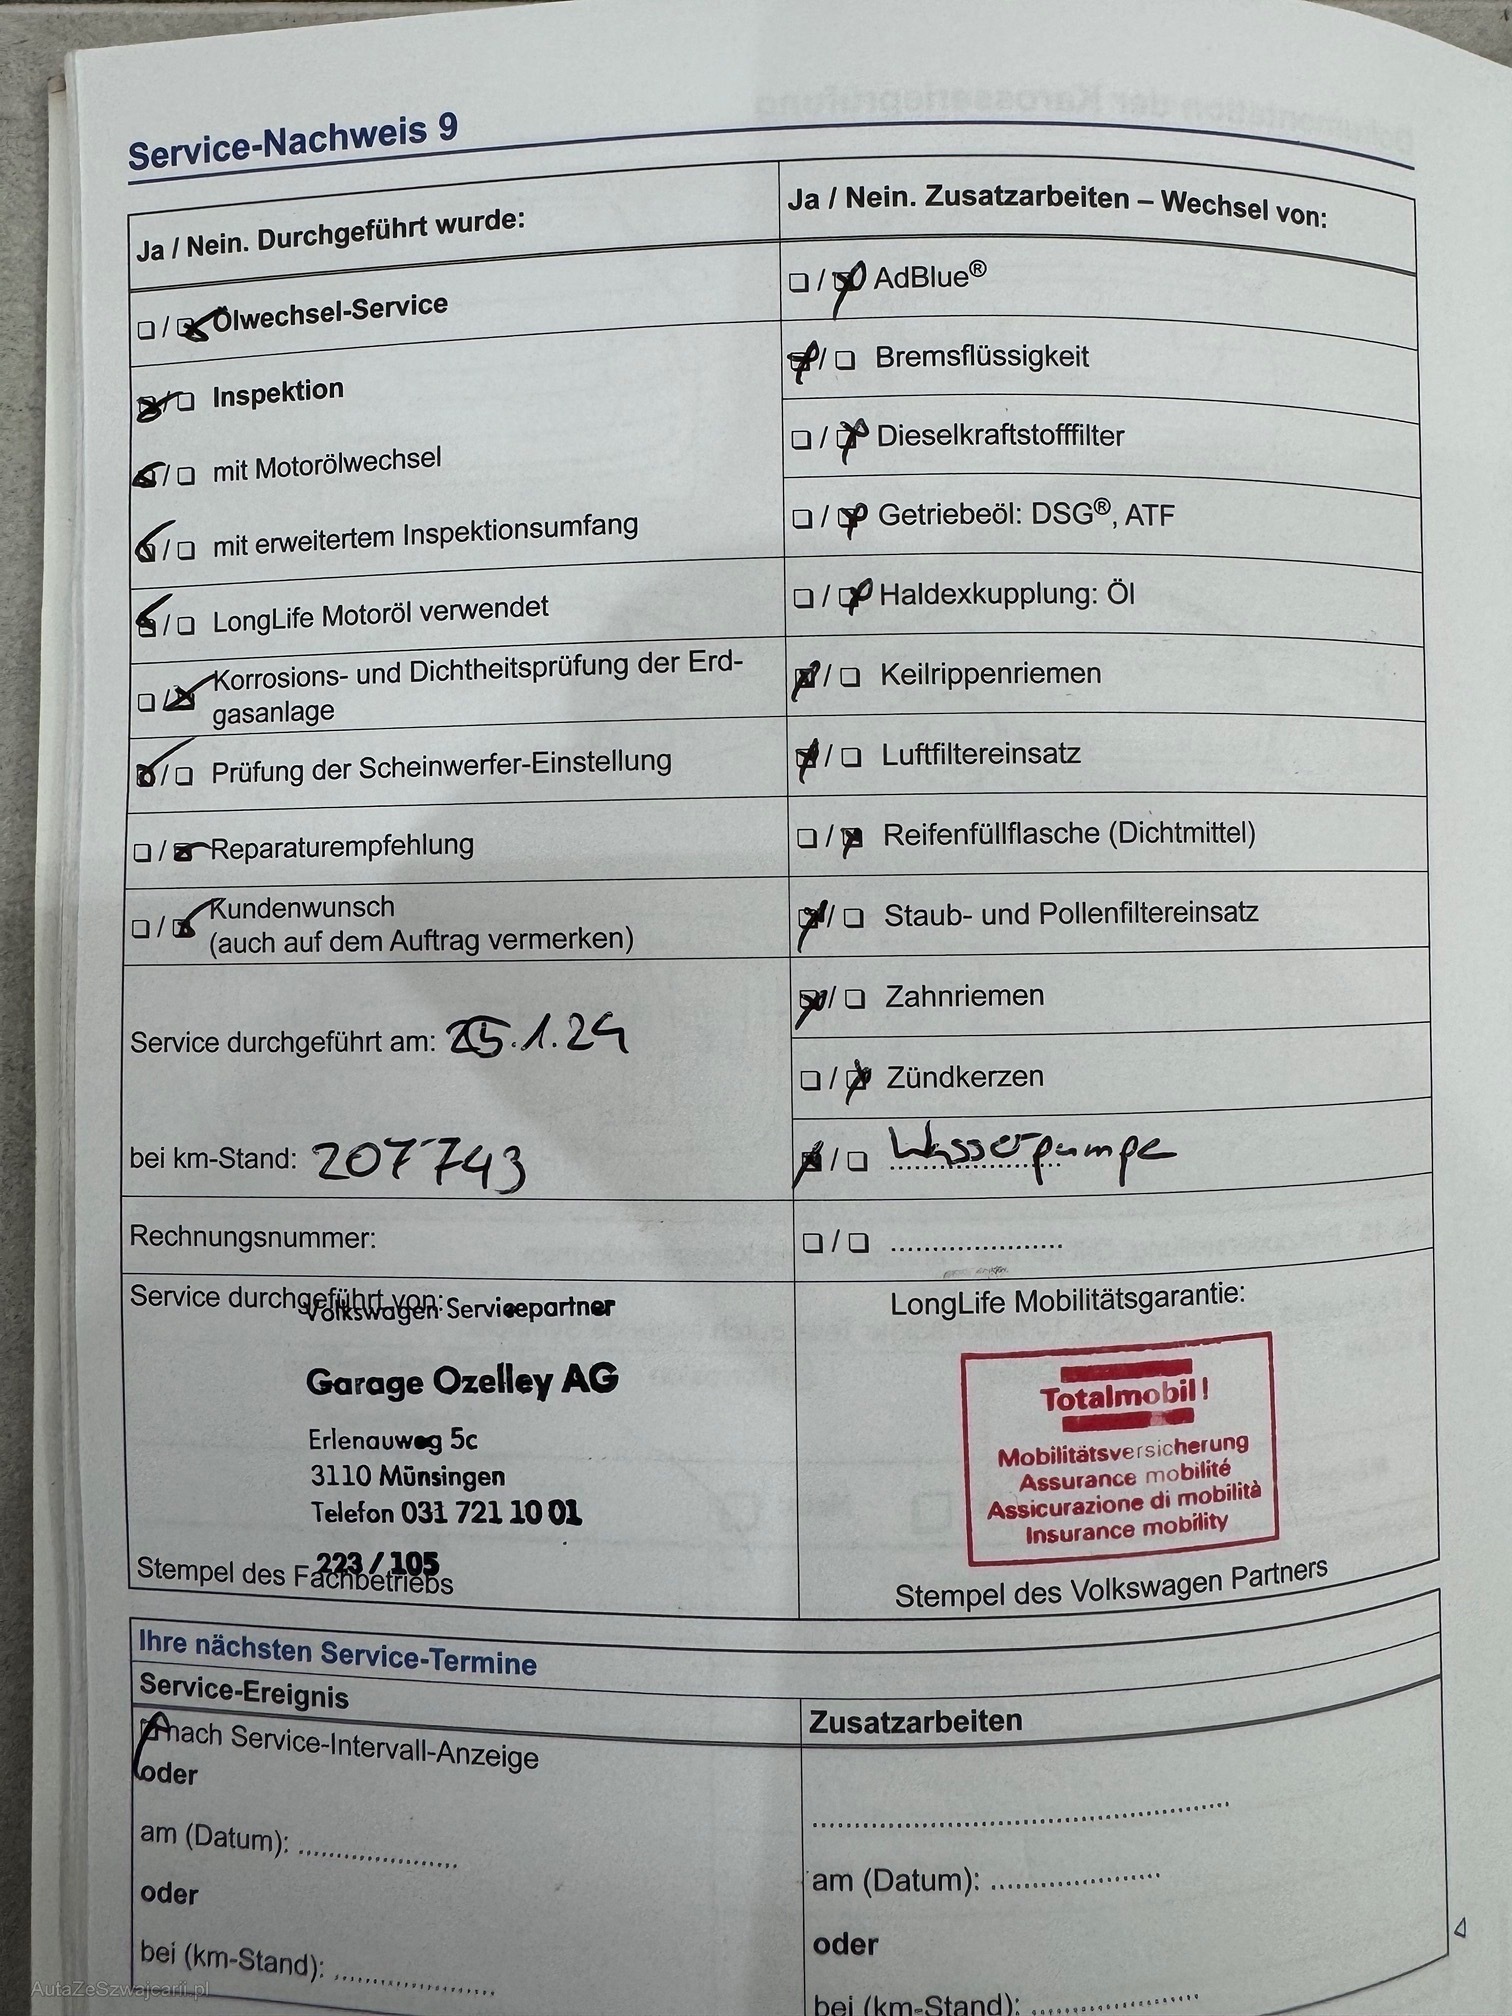 Service-Nachweis 9
Ja / Nein. Durchgeführt wurde:
☐ / ☒ Ölwechsel-Service
☒ / ☐ Inspektion
☒ / ☐ mit Motorölwechsel
☒ / ☐ mit erweitertem Inspektionsumfang
☒ / ☐ LongLife Motoröl verwendet
☐ / ☒ Korrosions- und Dichtheitsprüfung der Erd-
gasanlage
☒ / ☐ Prüfung der Scheinwerfer-Einstellung
☐ / ☒ Reparaturempfehlung
☐ / ☒ Kundenwunsch
(auch auf dem Auftrag vermerken)
Service durchgeführt am: 25.1.24
bei km-Stand: 207743
Rechnungsnummer:
Ja / Nein. Zusatzarbeiten – Wechsel von:
☐ / ☒ AdBlue®
☒ / ☐ Bremsflüssigkeit
☐ / ☒ Dieselkraftstofffilter
☐ / ☒ Getriebeöl: DSG®, ATF
☐ / ☒ Haldexkupplung: Öl
☒ / ☐ Keilrippenriemen
☒ / ☐ Luftfiltereinsatz
☐ / ☒ Reifenfüllflasche (Dichtmittel)
☒ / ☐ Staub- und Pollenfiltereinsatz
☒ / ☐ Zahnriemen
☐ / ☒ Zündkerzen
☒ / ☐ Wasserpumpe
☐ / ☐ ......................
Service durchgeführt von:
Volkswagen Servicepartner
Garage Ozelley AG
Erlenauweg 5c
3110 Münsingen
Telefon 031 721 10 01
223 / 105
Stempel des Fachbetriebs
LongLife Mobilitätsgarantie:
Totalmobil!
Mobilitätsversicherung
Assurance mobilité
Assicurazione di mobilità
Insurance mobility
Stempel des Volkswagen Partners
Ihre nächsten Service-Termine
Service-Ereignis
☒ nach Service-Intervall-Anzeige
oder
am (Datum): ......................
oder
bei (km-Stand): ......................
Zusatzarbeiten
am (Datum): ......................
oder
bei (km-Stand): ......................
AutaZeSzwajcarii.pl